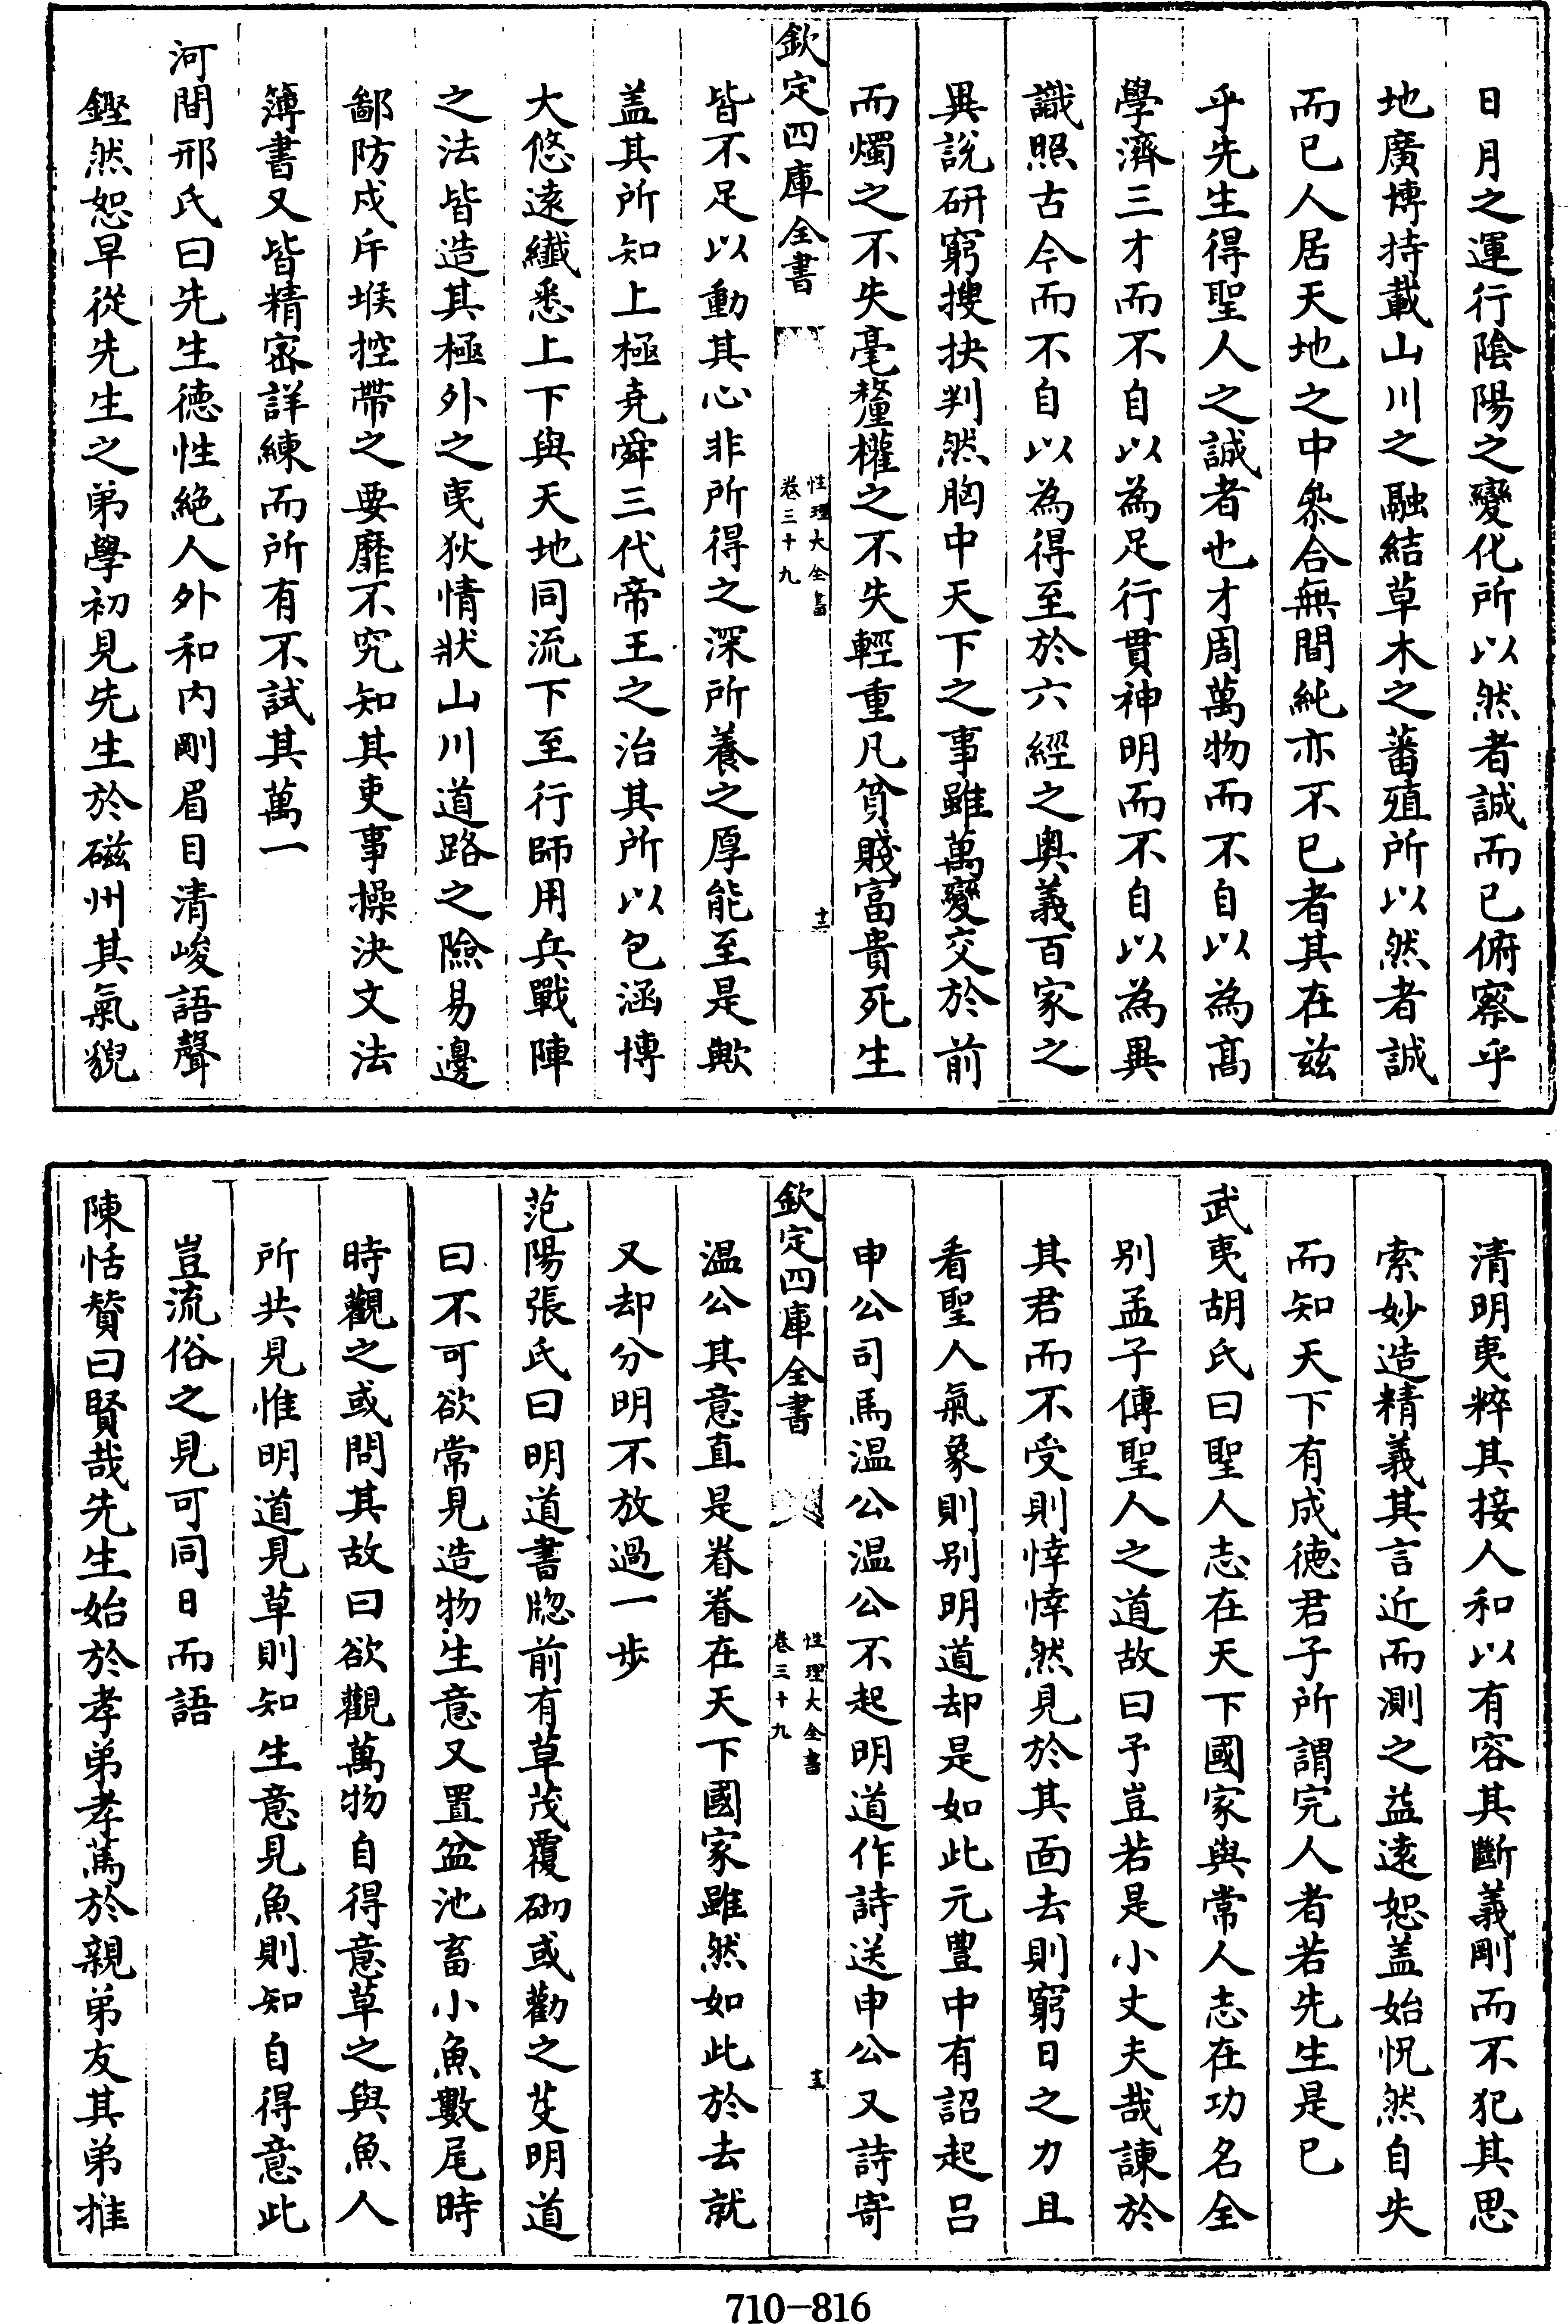 日月之運行陰陽之變化所以然者誠而已俯察乎
地廣博持載山川之融結草木之蕃殖所以然者誠
而已人居天地之中叅合無間純亦不已者其在兹
乎先生得聖人之誠者也才周萬物而不自以為髙
學濟三才而不自以為足行貫神明而不自以為異
識照古今而不自以為得至於六經之奥義百家之
異說研窮搜抉判然胸中天下之事雖萬變交於前
而燭之不失毫釐權之不失輕重凡貧賤富貴死生
欽定四庫全書
性理大全書
卷三十九
十二
皆不足以動其心非所得之深所養之厚能至是歟
盖其所知上極堯舜三代帝王之治其所以包涵博
大悠逺纖悉上下與天地同流下至行師用兵戰陣
之法皆造其極外之夷狄情狀山川道路之險易邊
鄙防戍斥堠控帶之要靡不究知其吏事操決文法
簿書又皆精宻詳練而所有不試其萬一
河間邢氏曰先生徳性絶人外和内剛眉目清峻語聲
鏗然恕早從先生之弟學初見先生於磁州其氣貌
清明夷粹其接人和以有容其斷義剛而不犯其思
索妙造精義其言近而測之益逺恕盖始怳然自失
而知天下有成徳君子所謂完人者若先生是已
武夷胡氏曰聖人志在天下國家與常人志在功名全
别孟子傳聖人之道故曰予豈若是小丈夫哉諫於
其君而不受則悻悻然見於其面去則窮日之力且
看聖人氣象則别明道却是如此元豐中有詔起呂
申公司馬温公温公不起明道作詩送申公又詩寄
欽定四庫全書
性理大全書
卷三十九
十三
温公其意直是眷眷在天下國家雖然如此於去就
又却分明不放過一步
范陽張氏曰明道書牕前有草茂覆砌或勸之芟明道
曰不可欲常見造物生意又置盆池畜小魚數尾時
時觀之或問其故曰欲觀萬物自得意草之與魚人
所共見惟明道見草則知生意見魚則知自得意此
豈流俗之見可同日而語
陳恬贊曰賢哉先生始於孝弟孝篤於親弟友其弟推
710-816